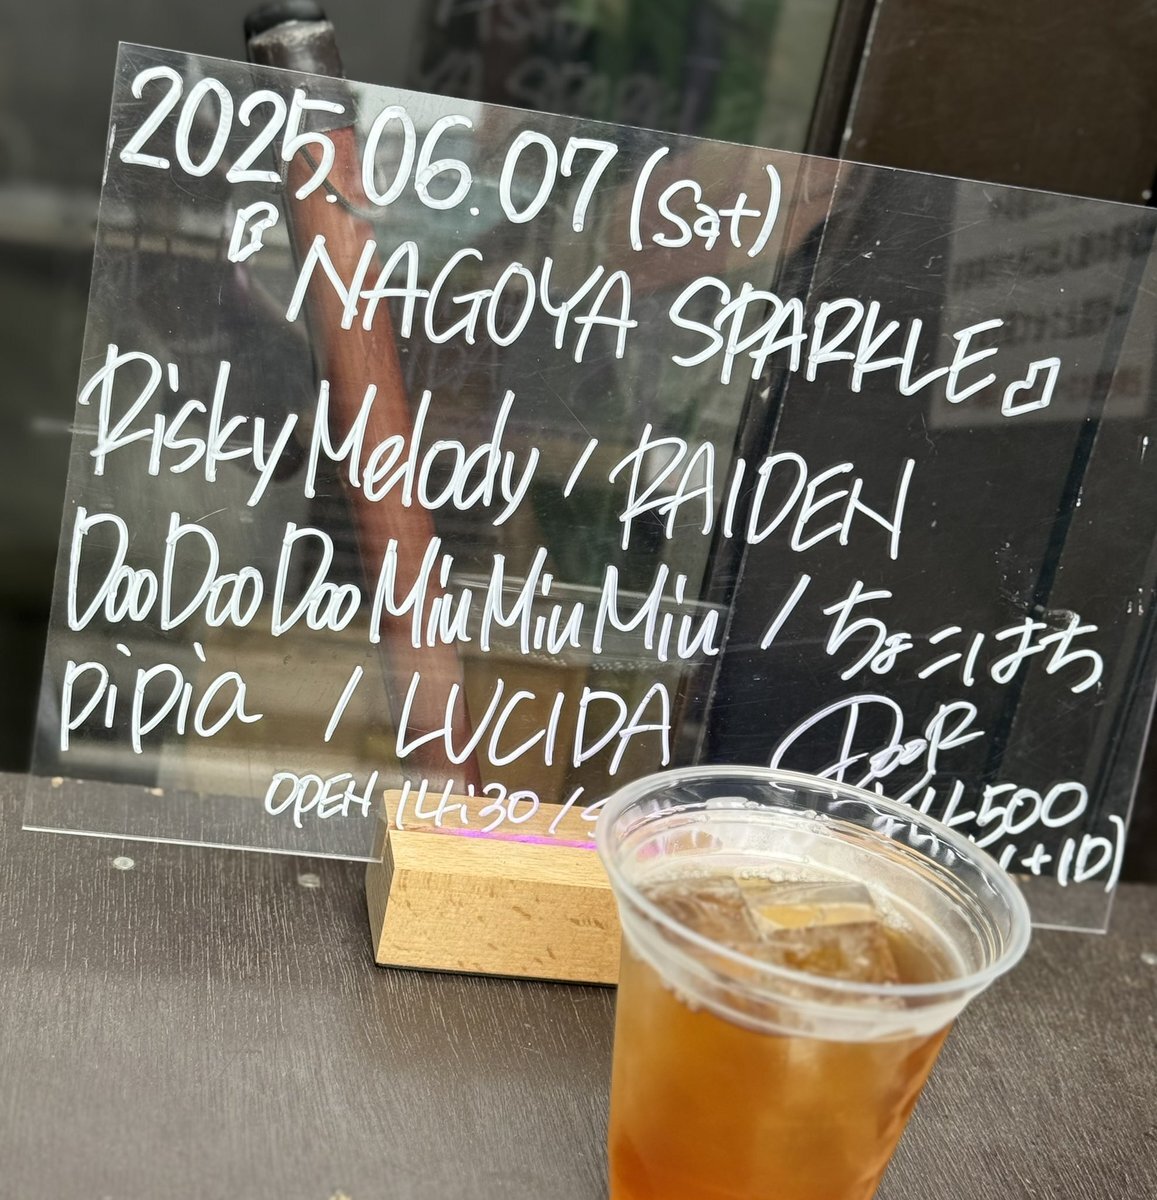 2025.06.07 (Sat)
『NAGOYA SPARKLE』
Risky Melody / RAIDEN
DooDooDooMiuMiuMiu / ちょこはち
pipia / LUCIDA
OPEN 14:30 /
DOOR
¥4.500
+1D)